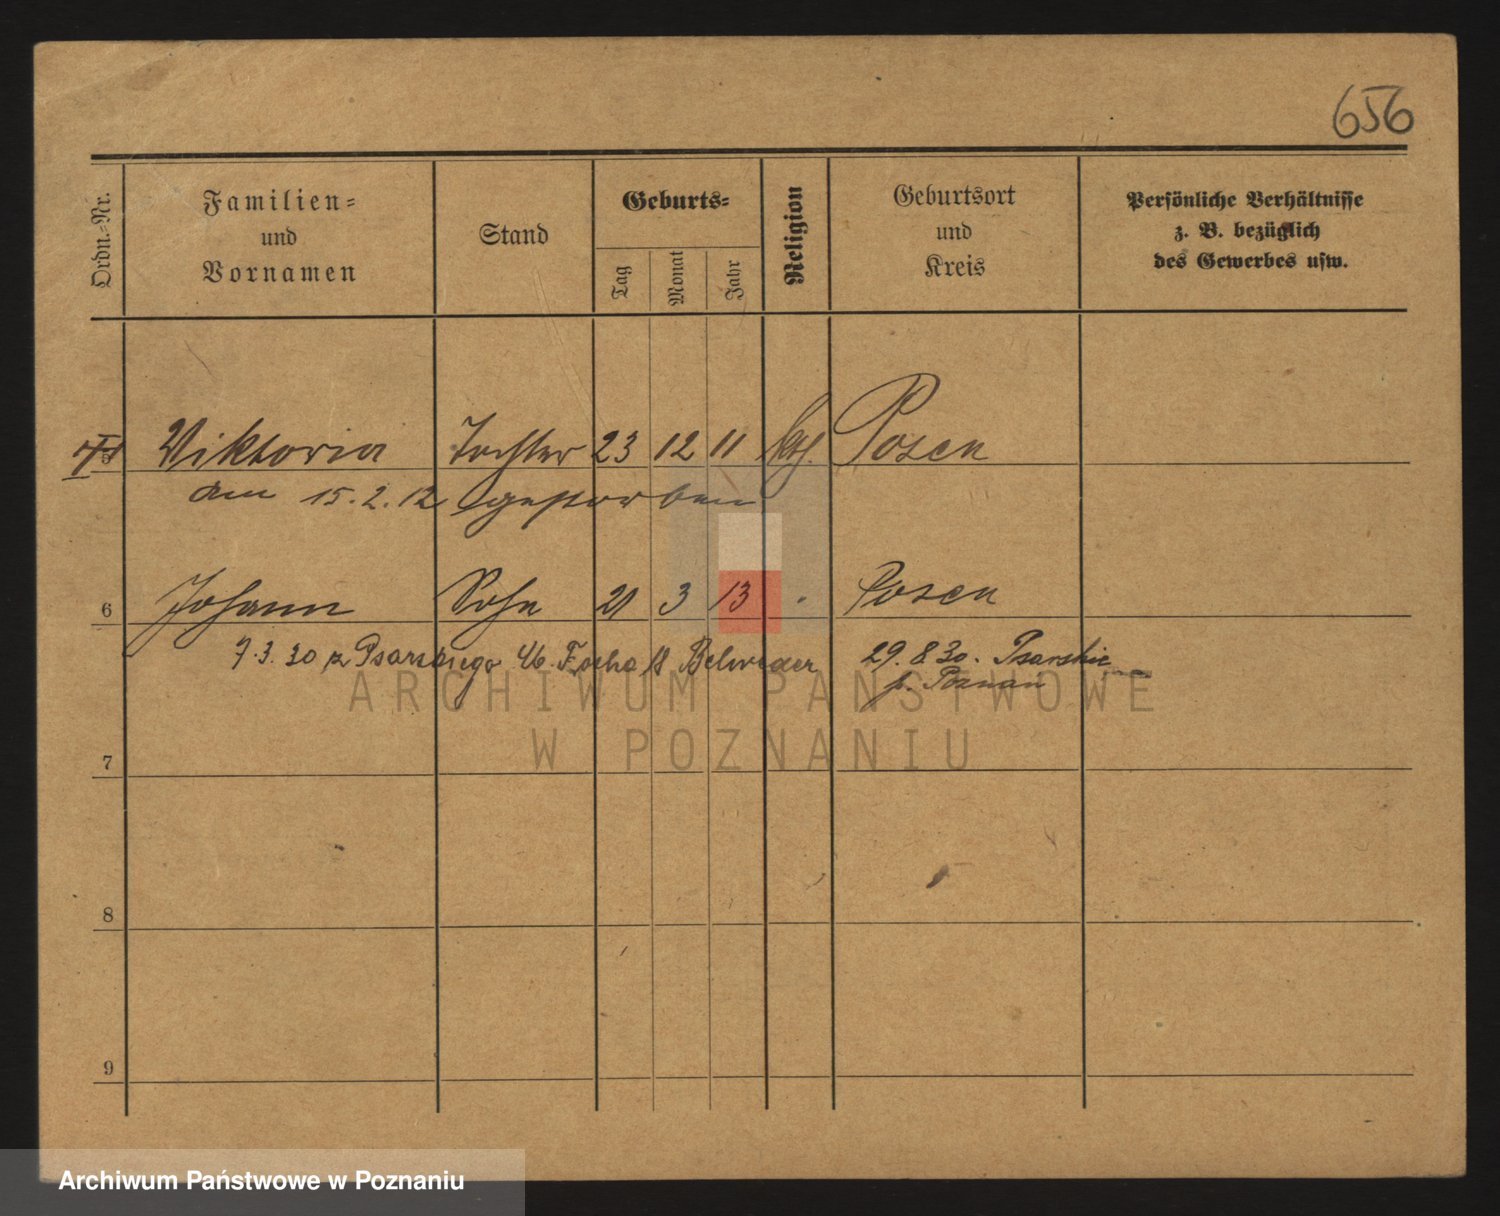 656
Ordn.-Nr.
Familien-
und
Vornamen
Stand
Geburts-
Tag
Monat
Jahr
Religion
Geburtsort
und
Kreis
Persönliche Verhältnisse
z. B. bezüglich
des Gewerbes usw.
5 Viktoria Tochter 23 12 11 kth. Posen
am 15.2.12 gestorben
6 Johann Sohn 21 3 13 Posen
7.3.30 z Psarskiego Focha Belweder 29.8.30. Psarskie
p. Poznań
ARCHIWUM PAŃSTWOWE
W POZNANIU
7
8
9
Archiwum Państwowe w Poznaniu